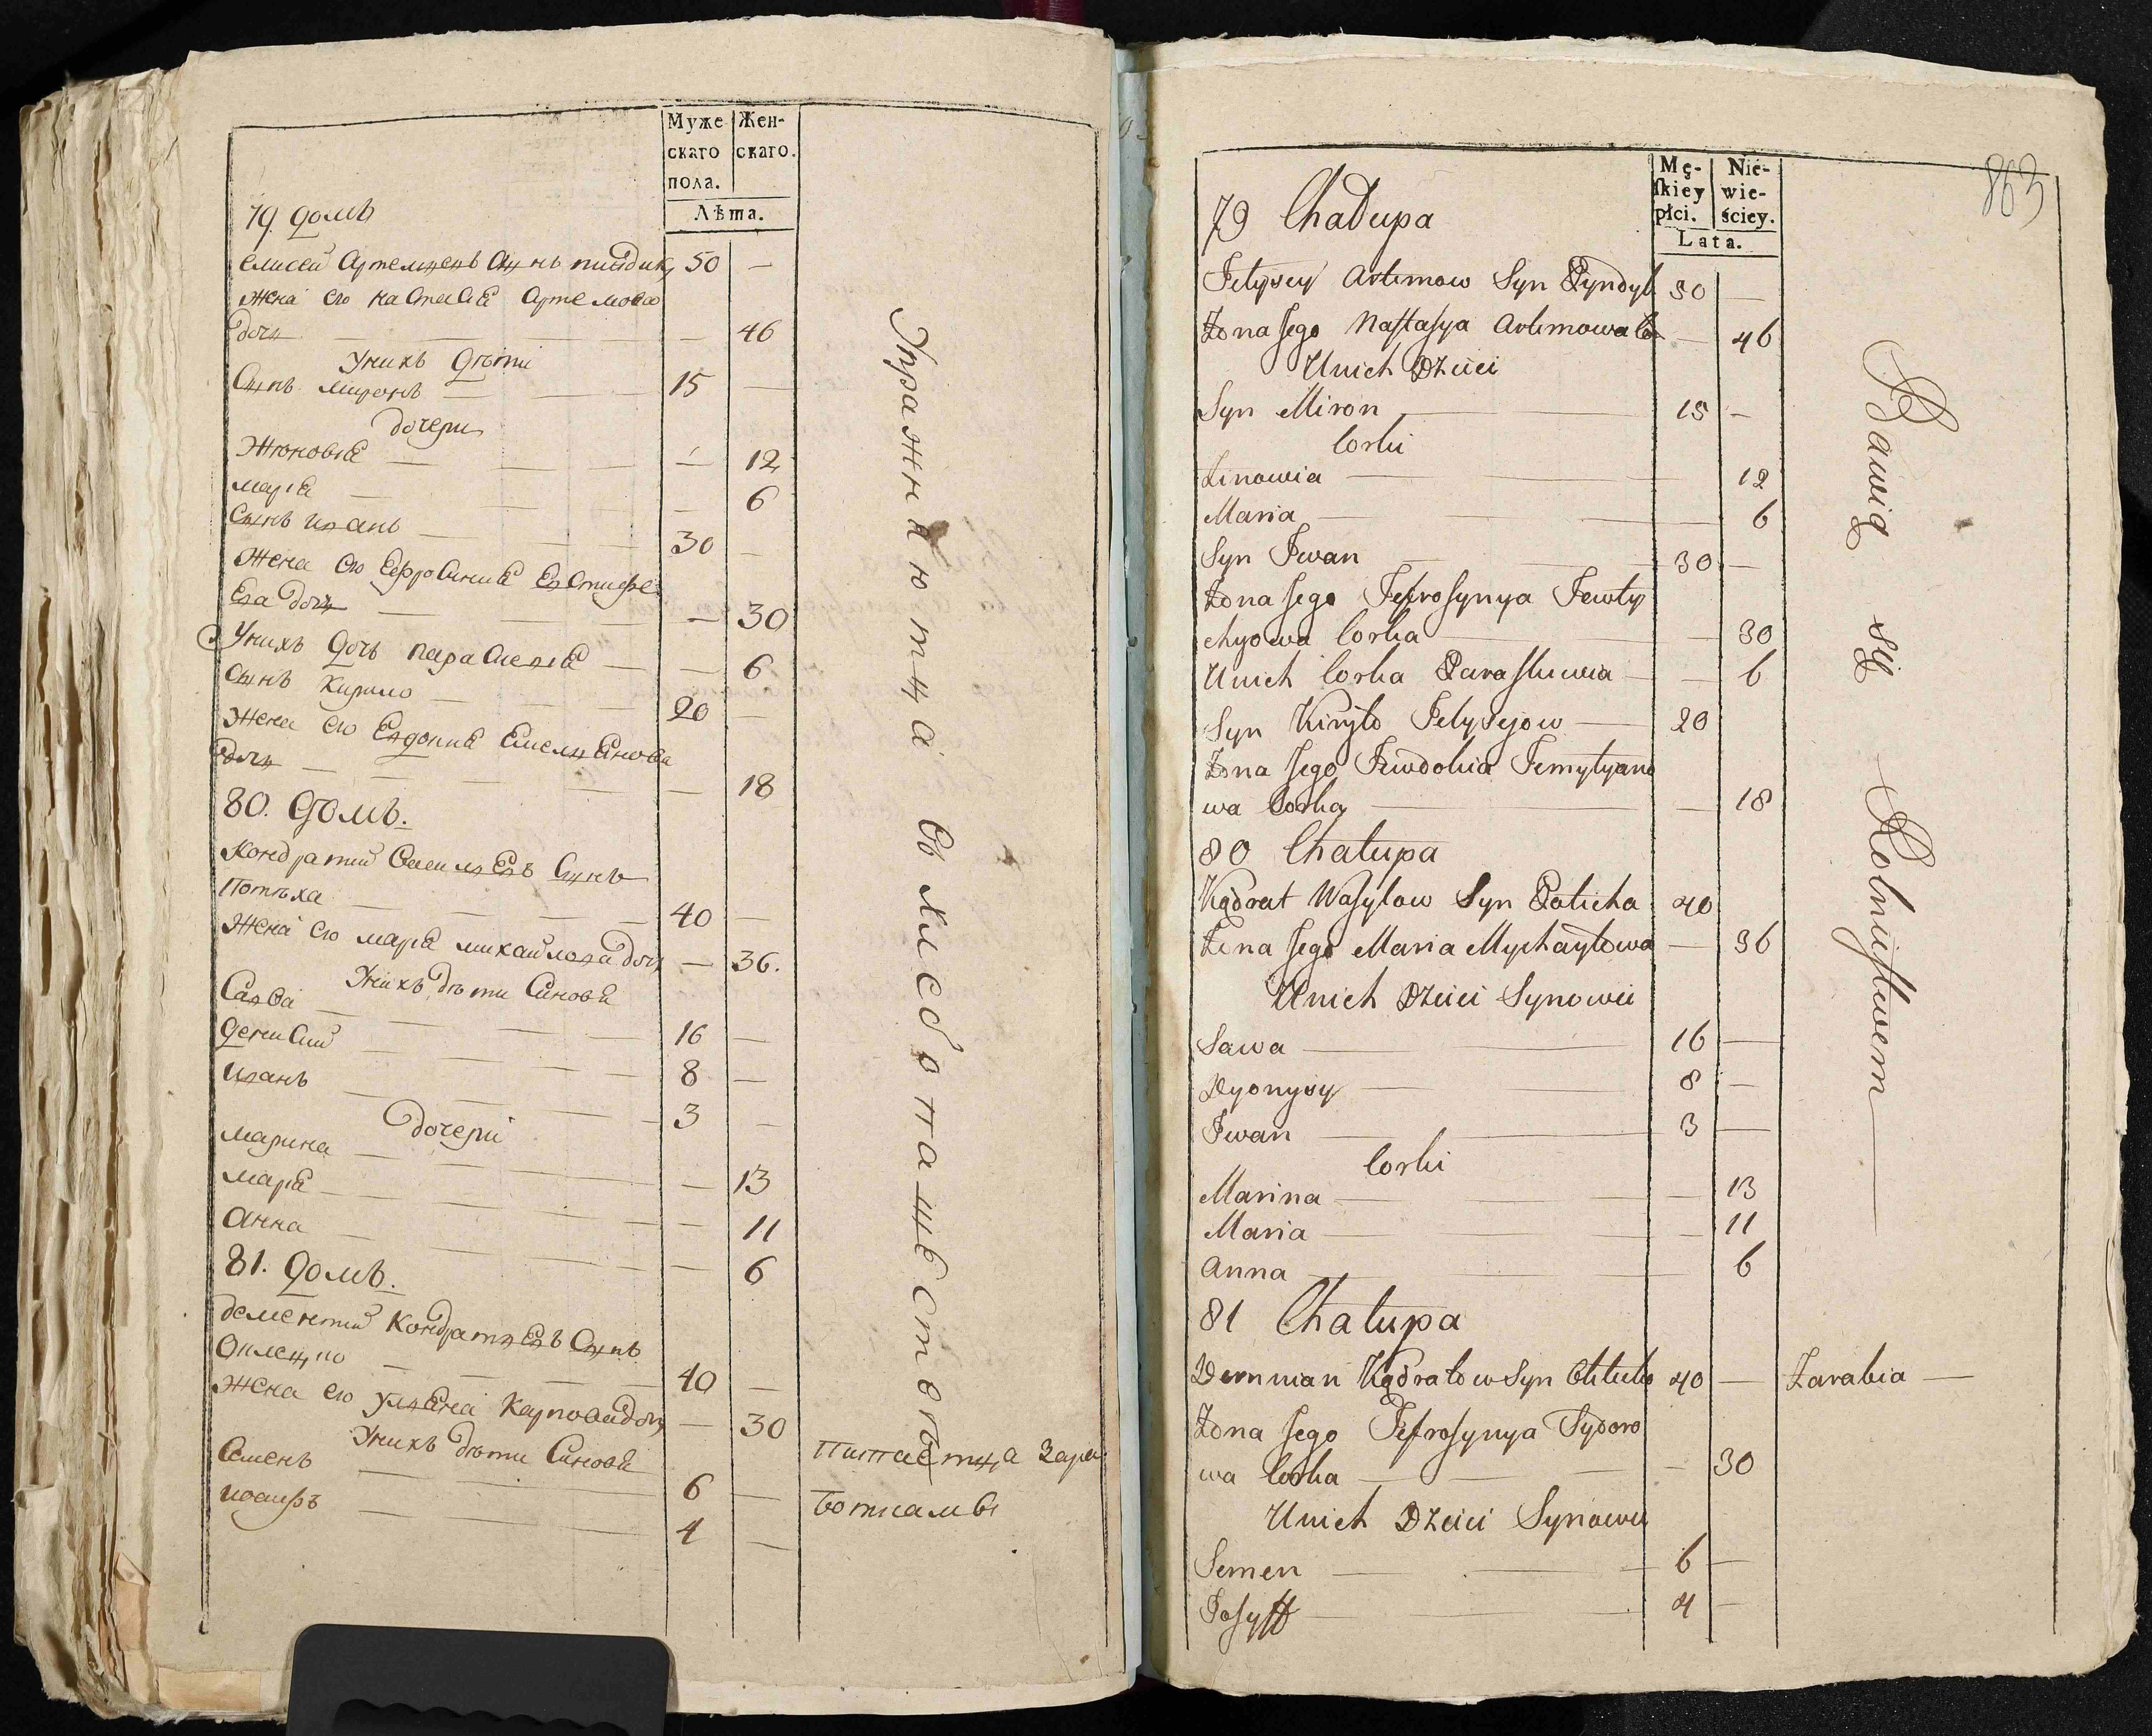 Муже
скаго
пола.
Жен-
скаго.
Лѣта.
79 домъ
Елисей Артемиевъ Сынъ пиндикъ 50 —
жена его настасия Артемова
дочь — — 46
Унихъ дѣти
Сынъ миронъ — 15 —
дочери
Жиновия — — 12
мария — — 6
Сынъ иванъ — 30 —
жена его Ефросиния Евстифе
ева дочь — — 30
Унихъ дочь парасковия — — 6
Сынъ Кирило — 20 —
жена его Евдокия Емелианова
дочь — — 18
80. домъ.
Кондратий Васильевъ Сынъ
Потѣха — 40 —
жена его мария михайлова дочь — 36.
Унихъ дѣти Синовя
Савва — 16 —
денисий — 8 —
иванъ — 3 —
дочери
марина — — 13
мария — — 11
Анна — — 6
81. домъ.
дементий Кондратиевъ Сынъ
40 —
жена его улияна Карпова дочь — 30
Унихъ дѣти Синовя
Семенъ — 6 —
иосифъ — 4 —
Упражнаютца въ хлебопашвстовъ
питаетца Зара
ботками
863
Mę-
ſkiey
płci.
Nie-
wie-
ściey.
Lata.
79 Chałupa
Jełysey Artemow Syn Pyndyk 50 —
Żona Jego Naſtaſya Artemowa Cor — 46
Unich Dzieci
Syn Miron — 15 —
Corki
Zinowia — 12
Maria — 6
Syn Jwan — 30 —
Żona Jego Jefroſynya Jewty
chyowa Corka — 30
Unich Corka Paraſkiewia — — 6
Syn Kiryło Jełysejow — 20
Żona Jego Jewdokia Jemyłyano
wa Corka — — 18
80 Chałupa
Kądrat Waſylow Syn Paticha 40
Żona Jego Maria Mychayłowa — 36
Unich Dzieci Synowie
Sawa — 16 —
Dyonysy — 8 —
Jwan — 3 —
Corki
Marina — — 13
Maria — — 11
Anna — 6
81 Chałupa
Demian Kądratow Syn 40 — Zarabia —
Żona Jego Jefroſynya Sydoro
wa Corka — — 30
Unich Dzieci Synowie
Semen — 6 —
Joſyff — 4 —
Bawią się Rolnictwem —